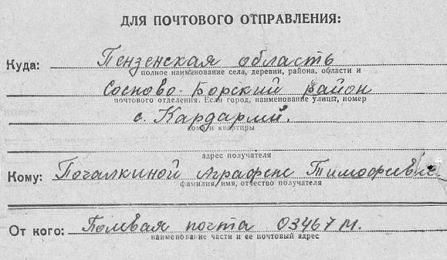 ДЛЯ ПОЧТОВОГО ОТПРАВЛЕНИЯ:
Куда: Пензенская область
полное наименование села, деревни, района, области и
Сосново-Борский район
почтового отделения. Если город, наименование улицы, номер
с. Кардармй.
дома и квартиры
адрес получателя
Кому: Почалкиной Аграфене Тимофеевне
фамилия, имя, отчество получателя
От кого: Полевая почта 03467 М.
наименование части и ее почтовый адрес